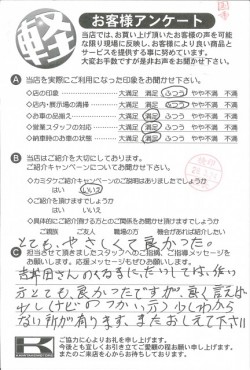 軽
お客様アンケート
当店では、お買い上げ頂いたお客様の声を可能
な限り現場に反映し、お客様により良い商品と
サービスを提供する事に努めています。
大変お手数ですが是非お声をお聞かせ下さい。
A 当店を実際にご利用になった印象をお聞かせ下さい。
◇店の印象 大満足 満足 ふつう やや不満 不満
◇店内・展示場の清掃 大満足 満足 ふつう やや不満 不満
◇お車の品揃え 大満足 満足 ふつう やや不満 不満
◇営業スタッフの対応 大満足 満足 ふつう やや不満 不満
◇納車時のお車の状態 大満足 満足 ふつう やや不満 不満
B 当店はご紹介を大切にしております。
ご紹介キャンペーンについてお聞かせ下さい。
◇カミタケご紹介キャンペーンのご説明はありましたでしょうか
はい いいえ
◇ご紹介を頂けますでしょうか
はい いいえ
◇具体的にご紹介頂ける方とのご関係をお聞かせ頂けますでしょうか
ご親類 ご友人 職場の方 機会があれば紹介したい
とても、やさしくて良かった。
C 担当させて頂きましたスタッフへのご指摘、ご指導メッセージを
お願いします。応援メッセージもぜひお願いします。
吉井田さんのくるまに、だいしては、使い
方とても、良かったですが、良く言えば
少し(ナビのつかい方)少しわから
ない所が有ります、またおしえて下さい
K
ご協力に心よりお礼を申し上げます。
今後とも宜しくお引き立てご愛顧の程お願い申し上げます。
またのご来店を心からお待ちしております。